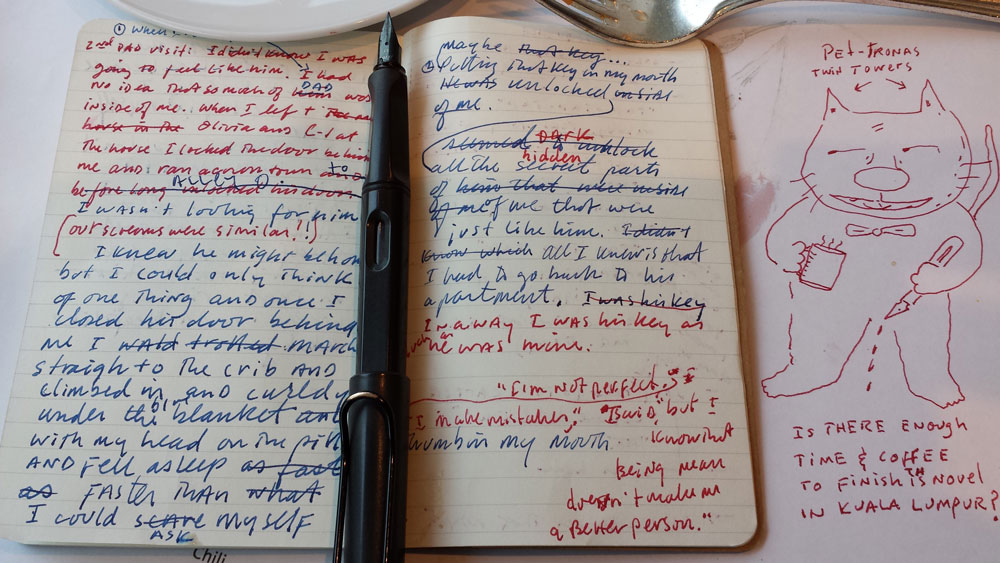 ① When
2nd DAD visit: I didn't know I was
going to feel like him. I had
no idea that so much of him DAD was
inside of me. When I left the
house in the Olivia and C-1 at
the house I locked the door behin
me and ran across town to
before long unlocked his door.
I wasn't looking for him
(our screams were similar!!)
I knew he might be home
but I could only think
of one thing and once I
closed his door behing
me I trotted march
straigh to the crib and
climbed in and curled
under the blanket and
with my head on the pill
AND fell asleep as fast
as FASTER THAN what
I could scare myself
ASK
maybe that key...
putting that key in my mouth
unlocked inside
of me.
seemed to unlock
DARK
hidden
all the secret parts
of him that were inside
of me of me that were
just like him. I didn't
know which all I knew is that
I had to go back to his
apartment. I was his key
In a way I was his key as
much as he was mine.
"I'm not perfect."
I make mistakes," I said "but I
thumb in my mouth
know that
being mean
doesn't make me
a Better person."
PET-TRONAS
TWIN TOWERS
IS THERE ENOUGH
TIME & COFFEE
TO FINISH THIS NOVEL
IN KUALA LUMPUR?
Chili